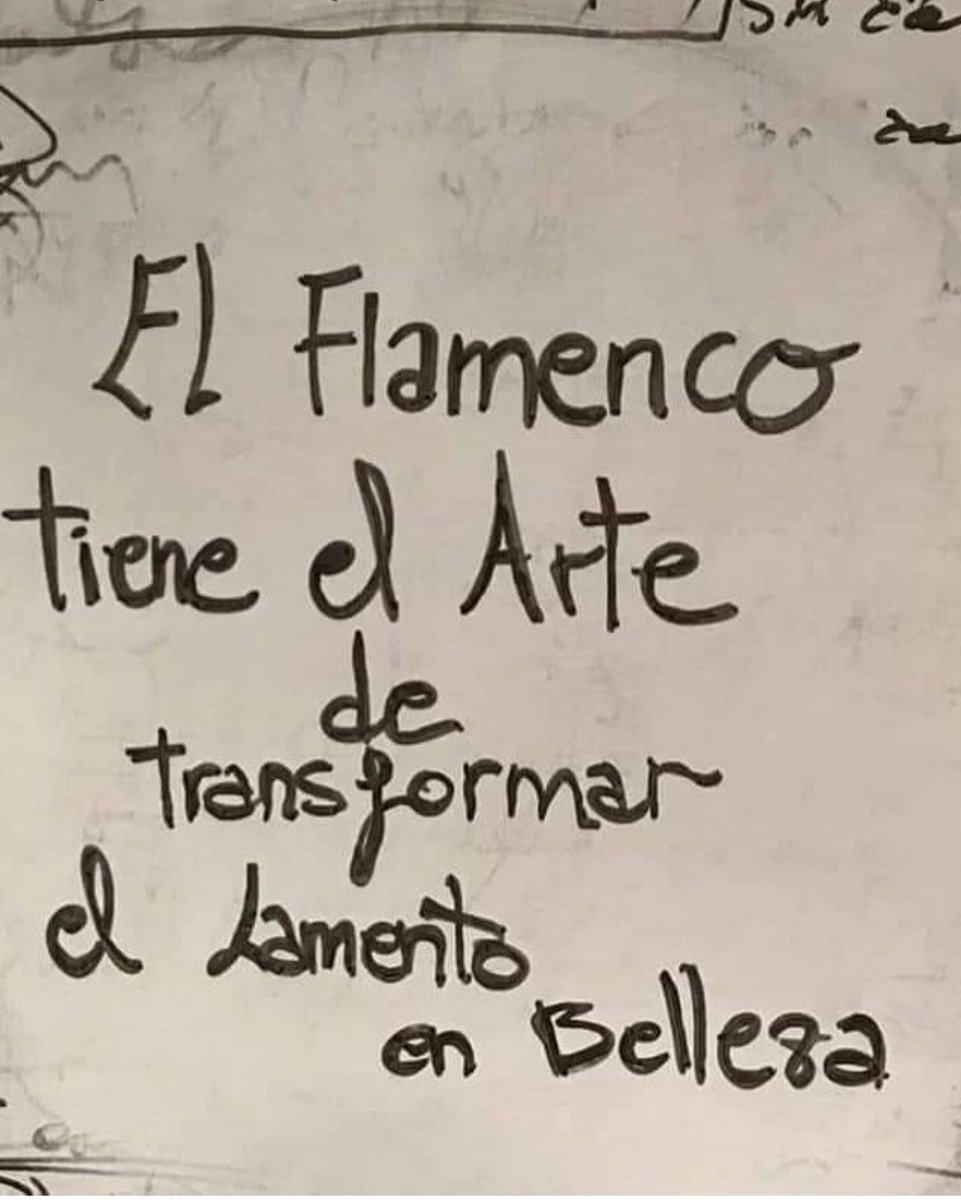 El Flamenco
tiene el Arte
de
transformar
el Lamento
en Belleza